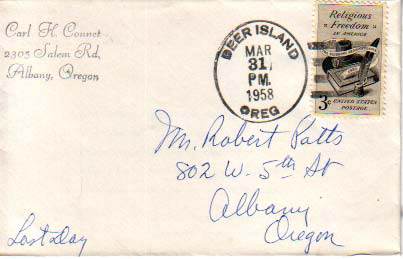 Carl H. Connet
2305 Salem Rd,
Albany, Oregon
DEER ISLAND
MAR
31
PM.
1958
OREG
Religious
Freedom
IN AMERICA
3¢ UNITED STATES
POSTAGE
Mr. Robert Potts
802 W. 5th St
Albany
Oregon
Last Day